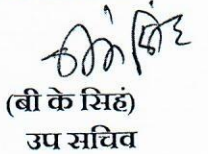 (बी के सिहं)
उप सचिव